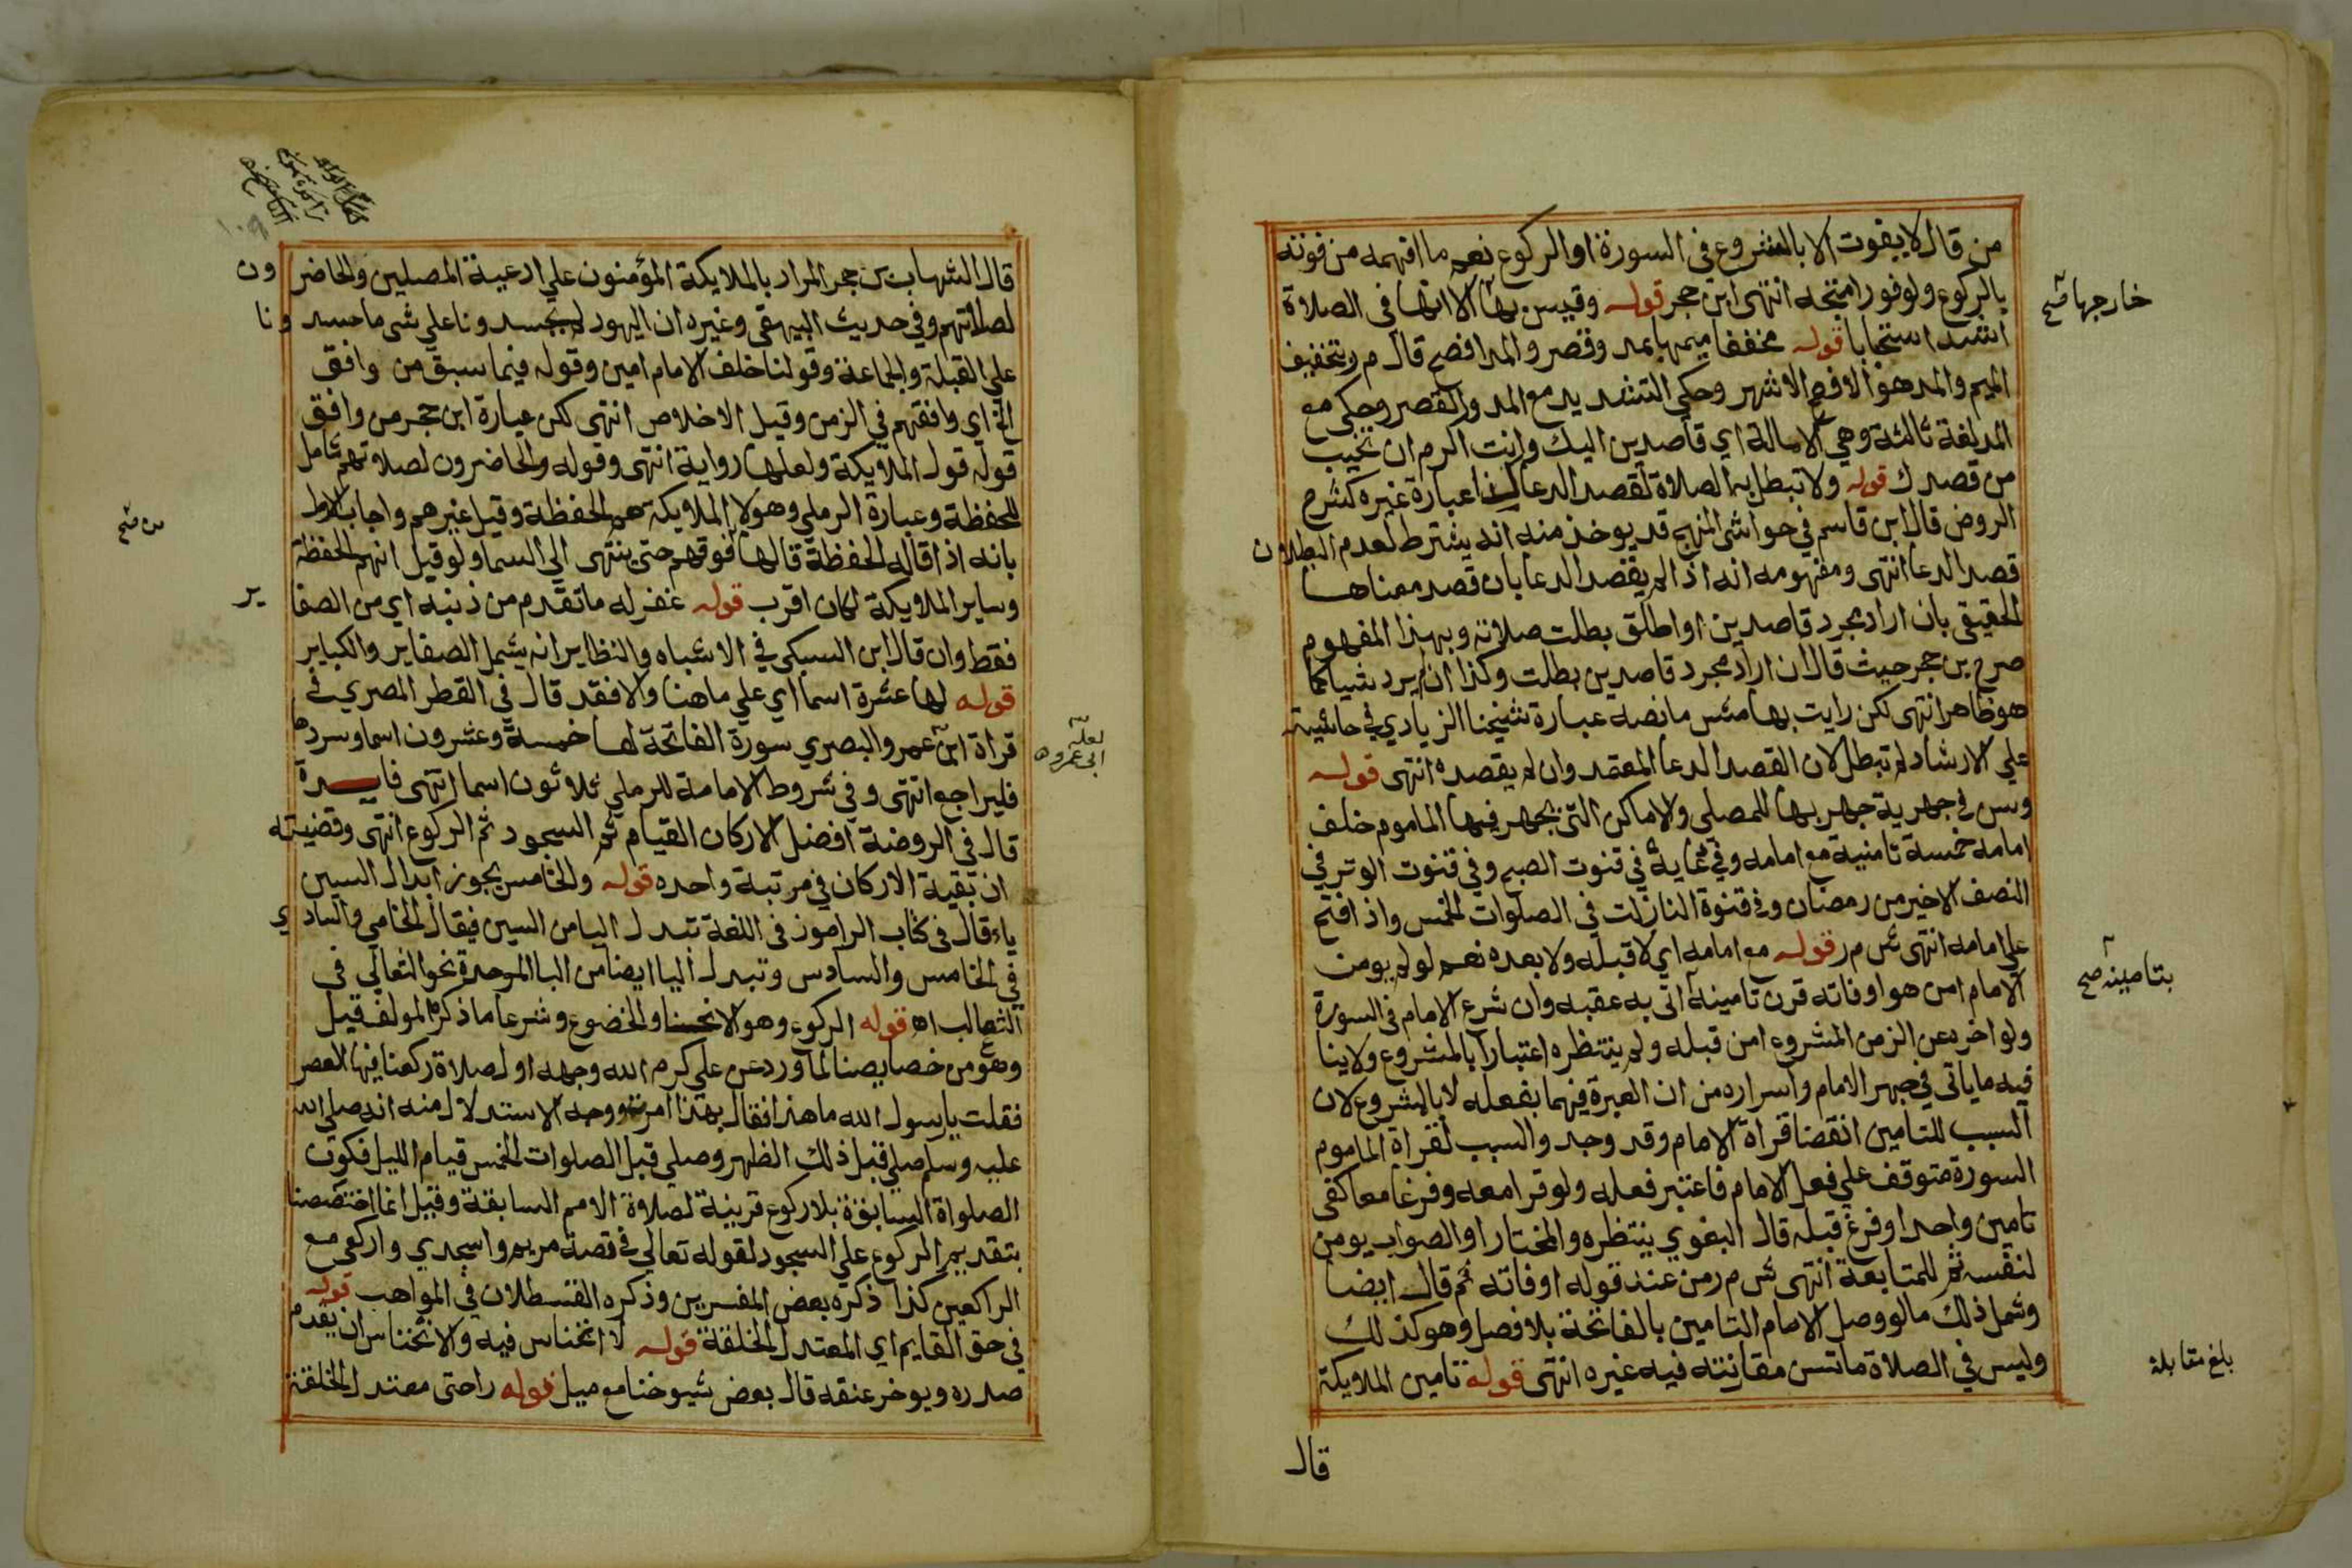 من قال لا يفوت الا بالشروع في السورة او الركوع نعم ما افهمه من فوته
بالركوع ولو فورا متجه انتهى ابن حجر قوله وقيس بها الا انها في الصلاة
خارجها صح
اشد استحبابا قوله مخففا ميمها بمد وقصر والمد افصح قال م ر وتخفيف
الميم والمد هو الافصح الاشهر وحكي التشديد مع المد والقصر وحكي مع
المد لغة ثالثة وهي الامالة اي قاصدين اليك وانت اكرم ان تخيب
من قصدك قوله ولا تبطل به الصلاة لقصد الدعا كذا عبارة غيره كشرح
الروض قال ابن قاسم في حواشي المنهج قد يوخذ منه انه يشترط لعدم البطلان
قصد الدعا انتهى ومفهومه انه اذا لم يقصد الدعا بان قصد معناها
الحقيقي بان اراد مجرد قاصدين او اطلق بطلت صلاته وبهذا المفهوم
صرح بن حجر حيث قال ان اراد مجرد قاصدين بطلت وكذا ان لم يرد شيا كما
هو ظاهر انتهى لكن رايت بهامش ما نصه عبارة شيخنا الزيادي في حاشيته
علي الارشاد لم تبطل لان القصد الدعا المعتمد وان لم يقصده انتهى قوله
وسن في جهرية جهر بها للمصلي والاماكن التي يجهر فيها الماموم خلف
امامه خمسة تامنية مع امامه وفي دعايه في قنوت الصبح وفي قنوت الوتر في
النصف الاخير من رمضان وفي قنوة النازلت في الصلوات الخمس واذا فتح
علي امامه انتهى ش م ر قوله مع امامه اي لا قبله ولا بعده نعم لو لم يومن
الامام امن هو او فاته قرن تامينه اتى به عقبه وان شرع الامام في السورة
بتامينه صح
ولو اخره عن الزمن المشروع امن قبله ولم ينتظره اعتبارا بالمشروع ولا ينا
فيه ما ياتي في جهر الامام واسراره من ان العبرة فيهما بفعله لا بالمشروع لان
السبب للتامين انقضا قراة الامام وقد وجد والسبب لقراة الماموم
السورة متوقف علي فعل الامام فاعتبر فعله ولو قرا معه وفرغا معا كفى
تامين واحد او فرغ قبله قال البغوي ينتظره والمختار او الصواب يومن
لنفسه ثم للمتابعة انتهى ش م ر من عند قوله او فاته ثم قال ايضا
وشمل ذلك ما لو وصل الامام التامين بالفاتحة بلا فصل وهو كذلك
وليس في الصلاة ما تسن مقارنته فيه غيره انتهى قوله تامين الملايكة
بلغ مقابلة
قال
قال الشهاب بن حجر المراد بالملايكة المؤمنون علي ادعية المصلين والحاضرون
لصلاتهم وفي حديث البيهقي وغيره ان اليهود لم يحسدونا علي شي ما حسدونا
علي القبلة والجماعة وقولنا خلف الامام امين وقوله فيما سبق من وافق
الخ اي وافقهم في الزمن وقيل الاخلاص انتهى لكن عبارة ابن حجر من وافق
قوله قول الملايكة ولعلها رواية انتهى وقوله والحاضرون لصلاتهم شامل
للحفظة وعبارة الرملي وهولا الملايكة هم الحفظة وقيل غيرهم واجاب الاول
بانه اذا قاله الحفظة قالها فوقهم حتى ينتهى الى السما ولو قيل انهم الحفظة
من صح
وساير الملايكة لكان اقرب قوله غفر له ما تقدم من ذنبه اي من الصغاير
فقط وان قال ابن السبكي في الاشباه والنظاير انه يشمل الصغاير والكباير
قوله لها عشرة اسما اي علي ما هنا والا فقد قال في القطر المصري في
قراة ابن عمرو البصري سورة الفاتحة لها خمسة وعشرون اسما وسردها
لعله ابى عمرو اه
فليراجع انتهى وفي شروط الامامة للرملي ثلاثون اسما انتهى فايدة
قال في الروضة افضل الاركان القيام ثم السجود ثم الركوع انتهى وقضيته
ان بقية الاركان في مرتبة واحده قوله والخامس يجوز ابدال السين
ياء قال في كتاب الراموز في اللغة تبدل اليا من السين فيقال الخامي والسادي
في الخامس والسادس وتبدل اليا ايضا من البا الموحدة نحو الثعالي في
الثعالب اه قوله الركوع وهو الانحنا والخضوع وشرعا ما ذكره المولف قيل
وهو من خصايصنا لما ورد عن علي كرم الله وجهه اول صلاة ركعنا فيها العصر
فقلت يا رسول الله ما هذا فقال بهذا امرت ووجه الاستدلال منه انه صلى الله
عليه وسلم صلي قبل ذلك الظهر وصلي قبل الصلوات الخمس قيام الليل فكون
الصلواة السابقة بلا ركوع قرينة لصلاة الامم السابقة وقيل انما اختصصنا
بتقديم الركوع علي السجود لقوله تعالي في قصة مريم واسجدي واركعي مع
الراكعين كذا ذكره بعض المفسرين وذكره القسطلان في المواهب قوله
في حق القايم اي المعتدل الخلقة قوله لا انخناس فيه والانخناس ان يقدم
صدره ويوخر عنقه قال بعض شيوخنا مع ميل قوله راحتى معتدل الخلقة